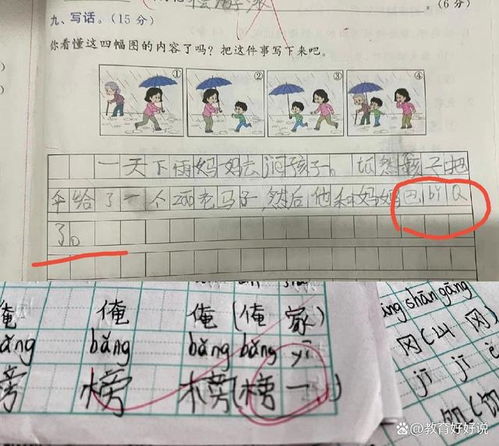 (6 分)
九、写话。(15 分)
你看懂这四幅图的内容了吗?把这件事写下来吧。
① ② ③ ④
一天下雨妈妈去 孩子。 孩子把
伞给了一个 老 子 然后他和妈妈
了。
俺 俺 俺(俺家)
bǎng bǎng bǎng bǎng yī
榜 榜(榜一)
shān gāng
冈(山冈)
jī jī
@教育好好说